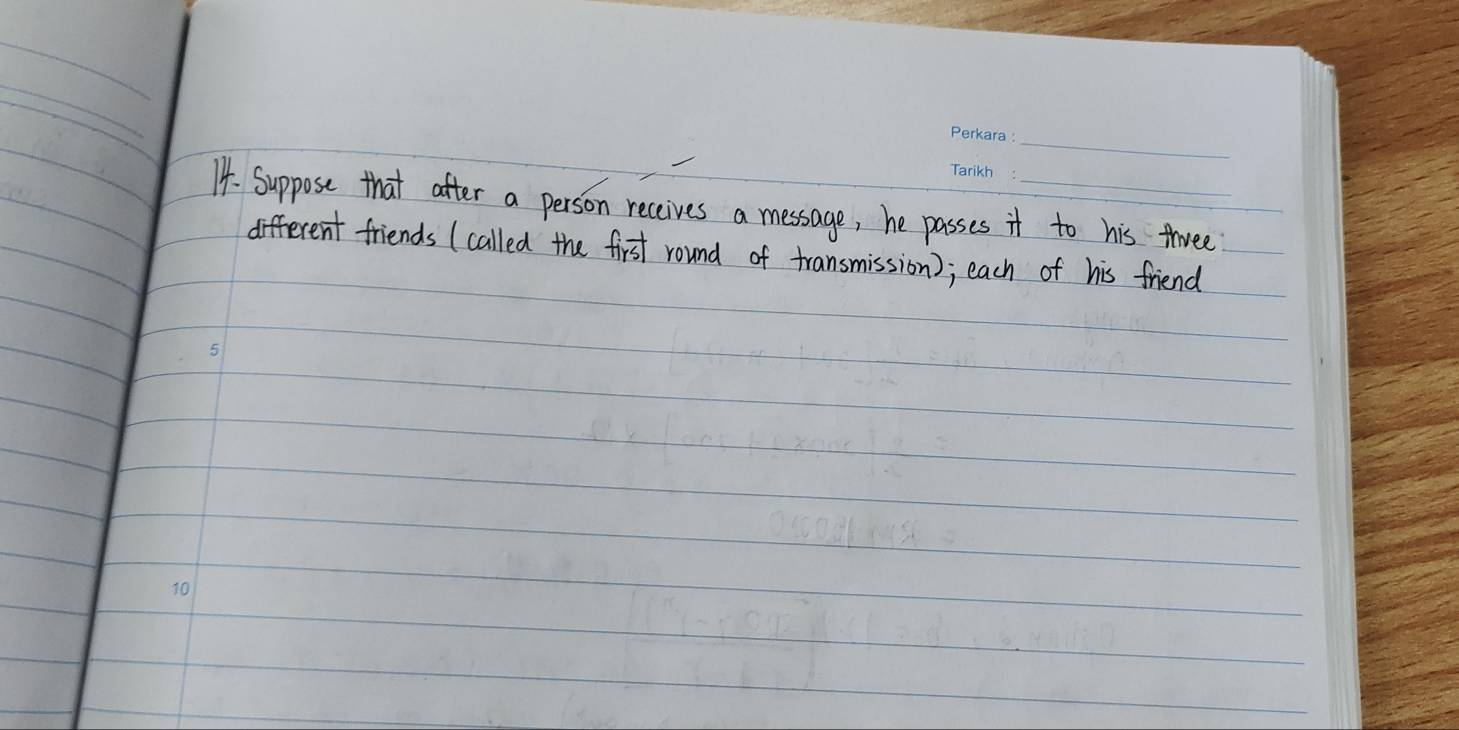 Perkara :
Tarikh :
14. Suppose that after a person receives a message, he passes it to his three
different friends (called the first round of transmission); each of his friend
5
10